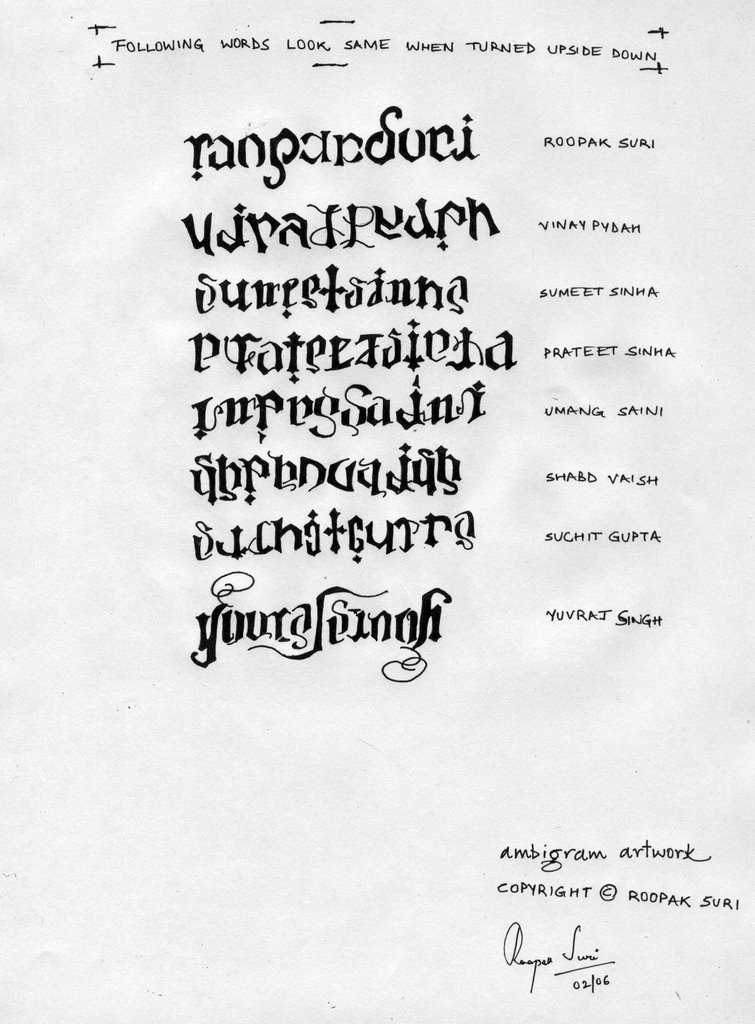 FOLLOWING WORDS LOOK SAME WHEN TURNED UPSIDE DOWN
roopaksuri ROOPAK SURI
vinaypydah VINAY PYDAH
sumeetsinha SUMEET SINHA
prateetsinha PRATEET SINHA
umangSaini UMANG SAINI
shabdvaish SHABD VAISH
suchitgupta SUCHIT GUPTA
yuvrajsingh YUVRAJ SINGH
ambigram artwork
COPYRIGHT © ROOPAK SURI
Roopak Suri
02/06